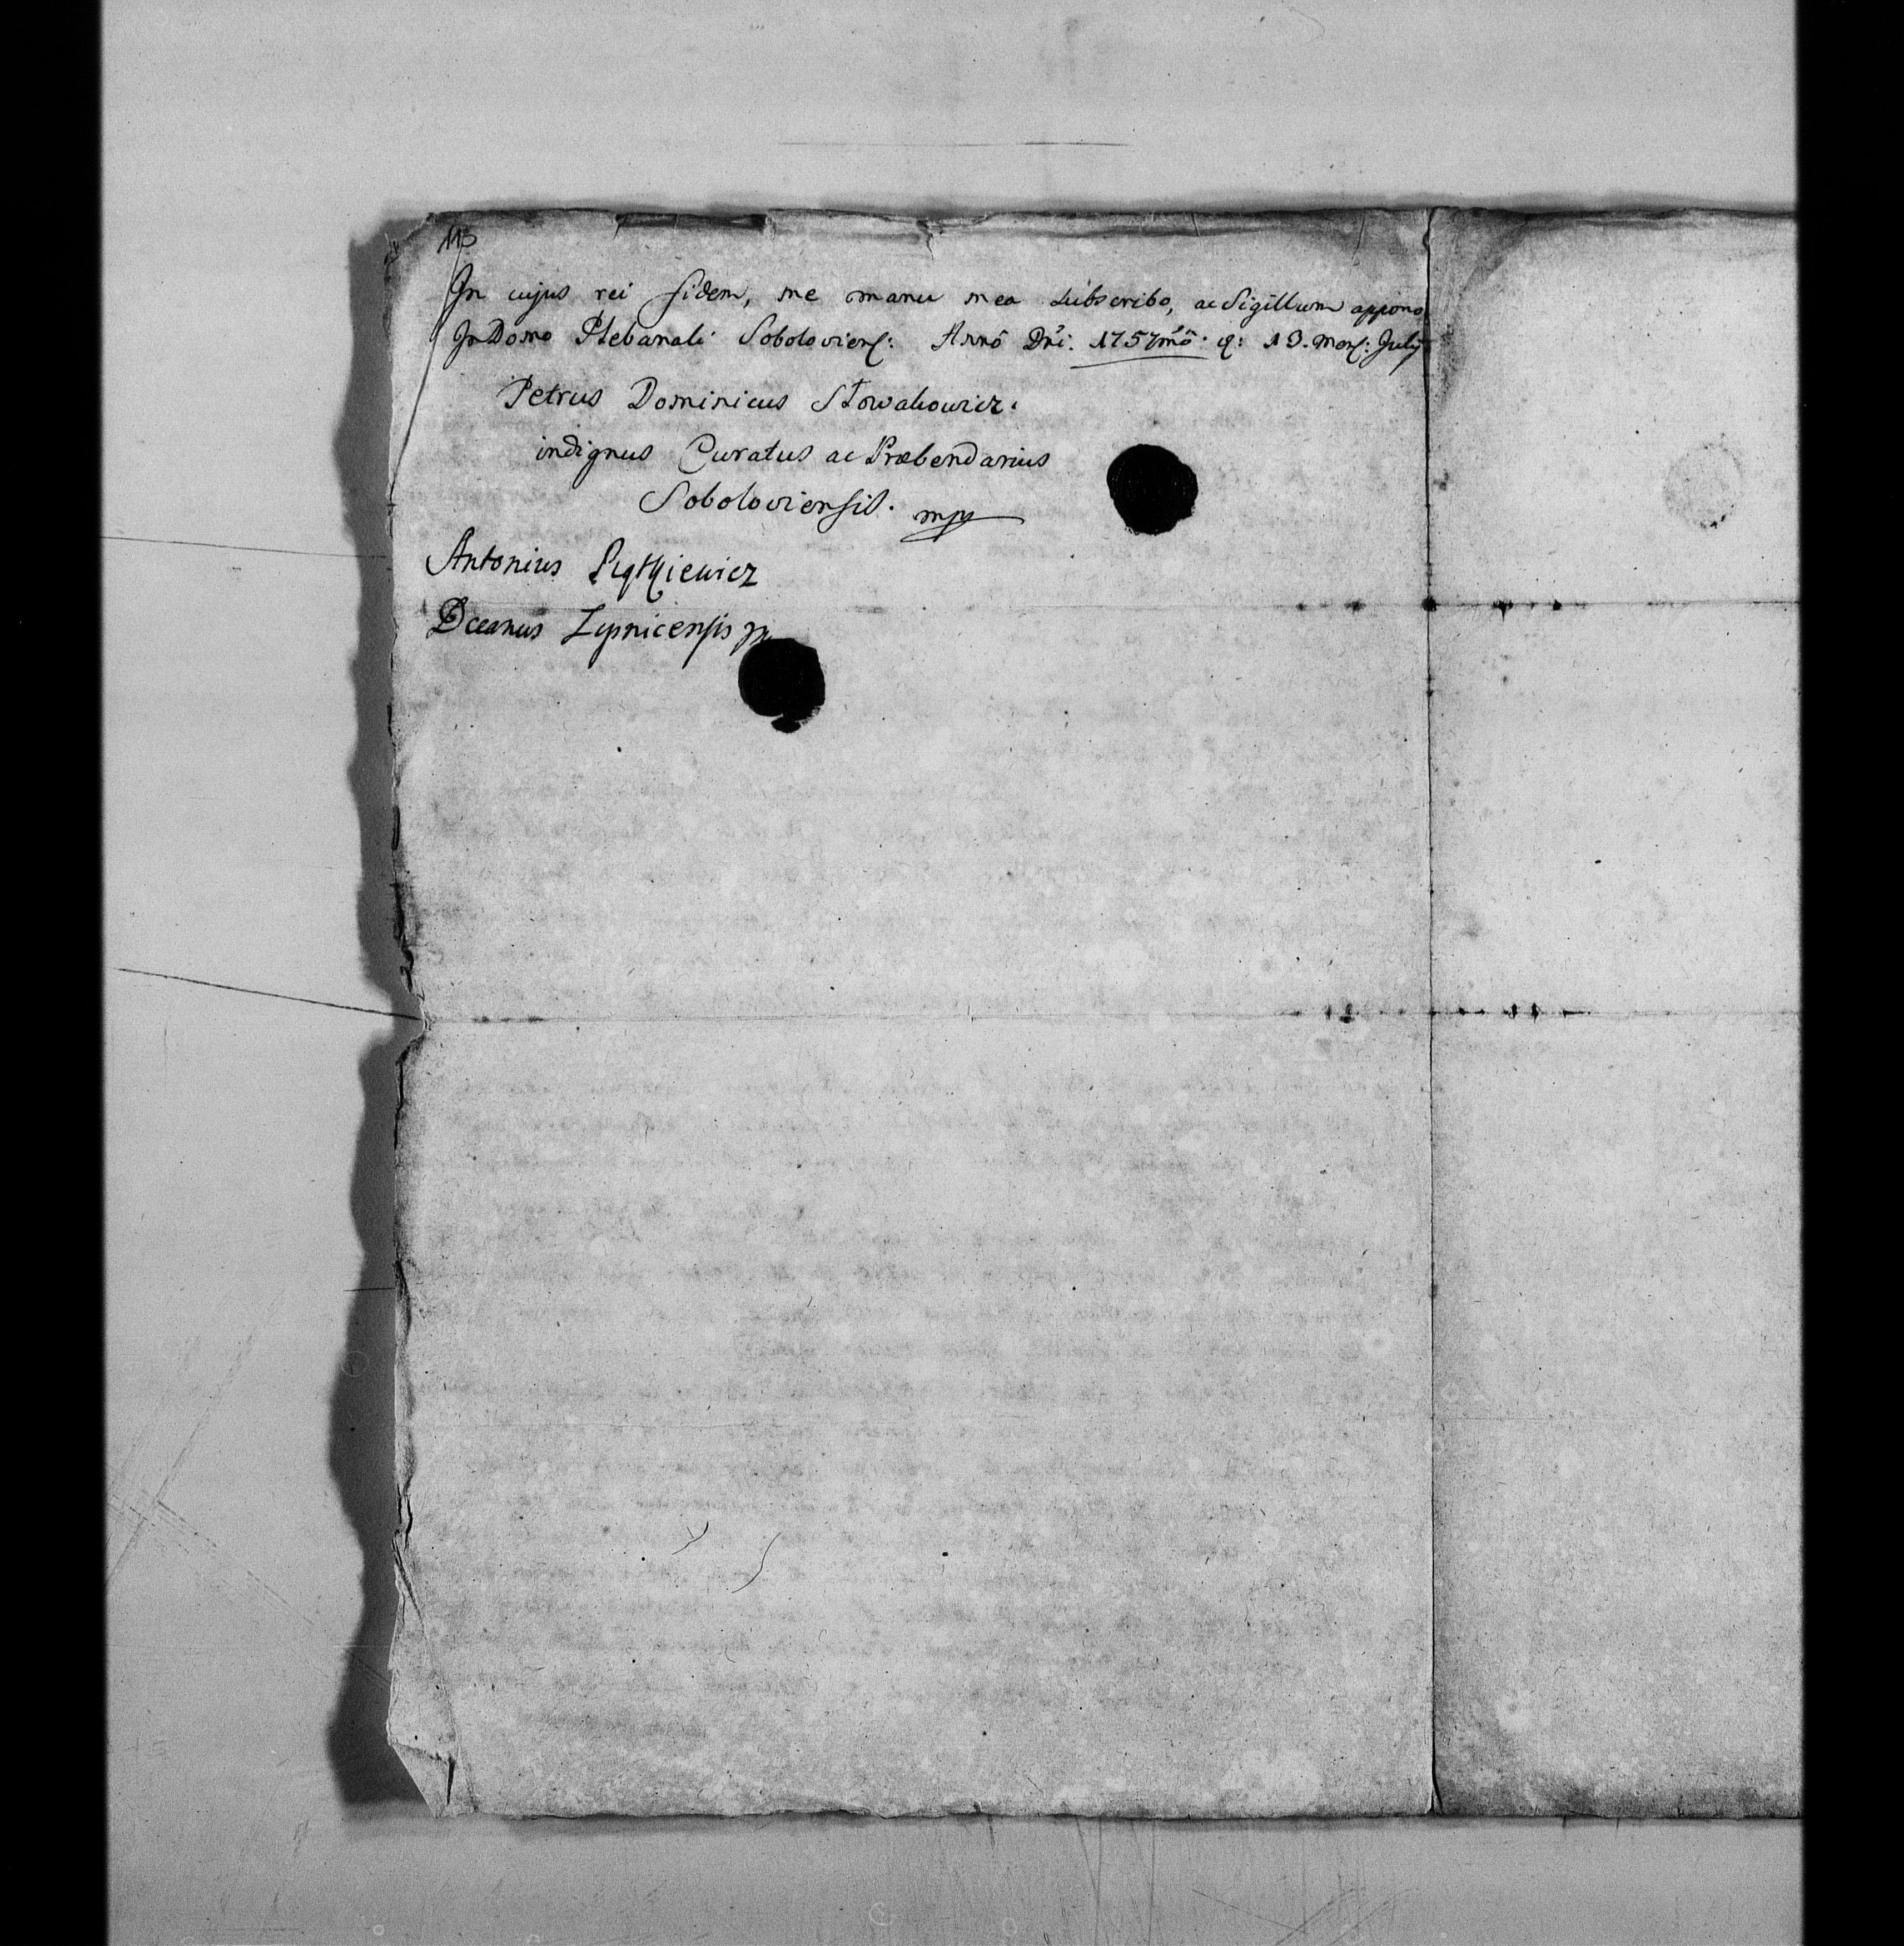 113
In cujus rei fidem, me manu mea subscribo, ac Sigillum appono
In Domo Plebanali Soboloviens: Annô Dñi. 1757mô. d: 13. Mens: Julij
Petrus Dominicus Słowakowicz.
indignus Curatus ac Præbendarius
Soboloviensis. mpp
Antonius
Decanus Lipnicensis mp